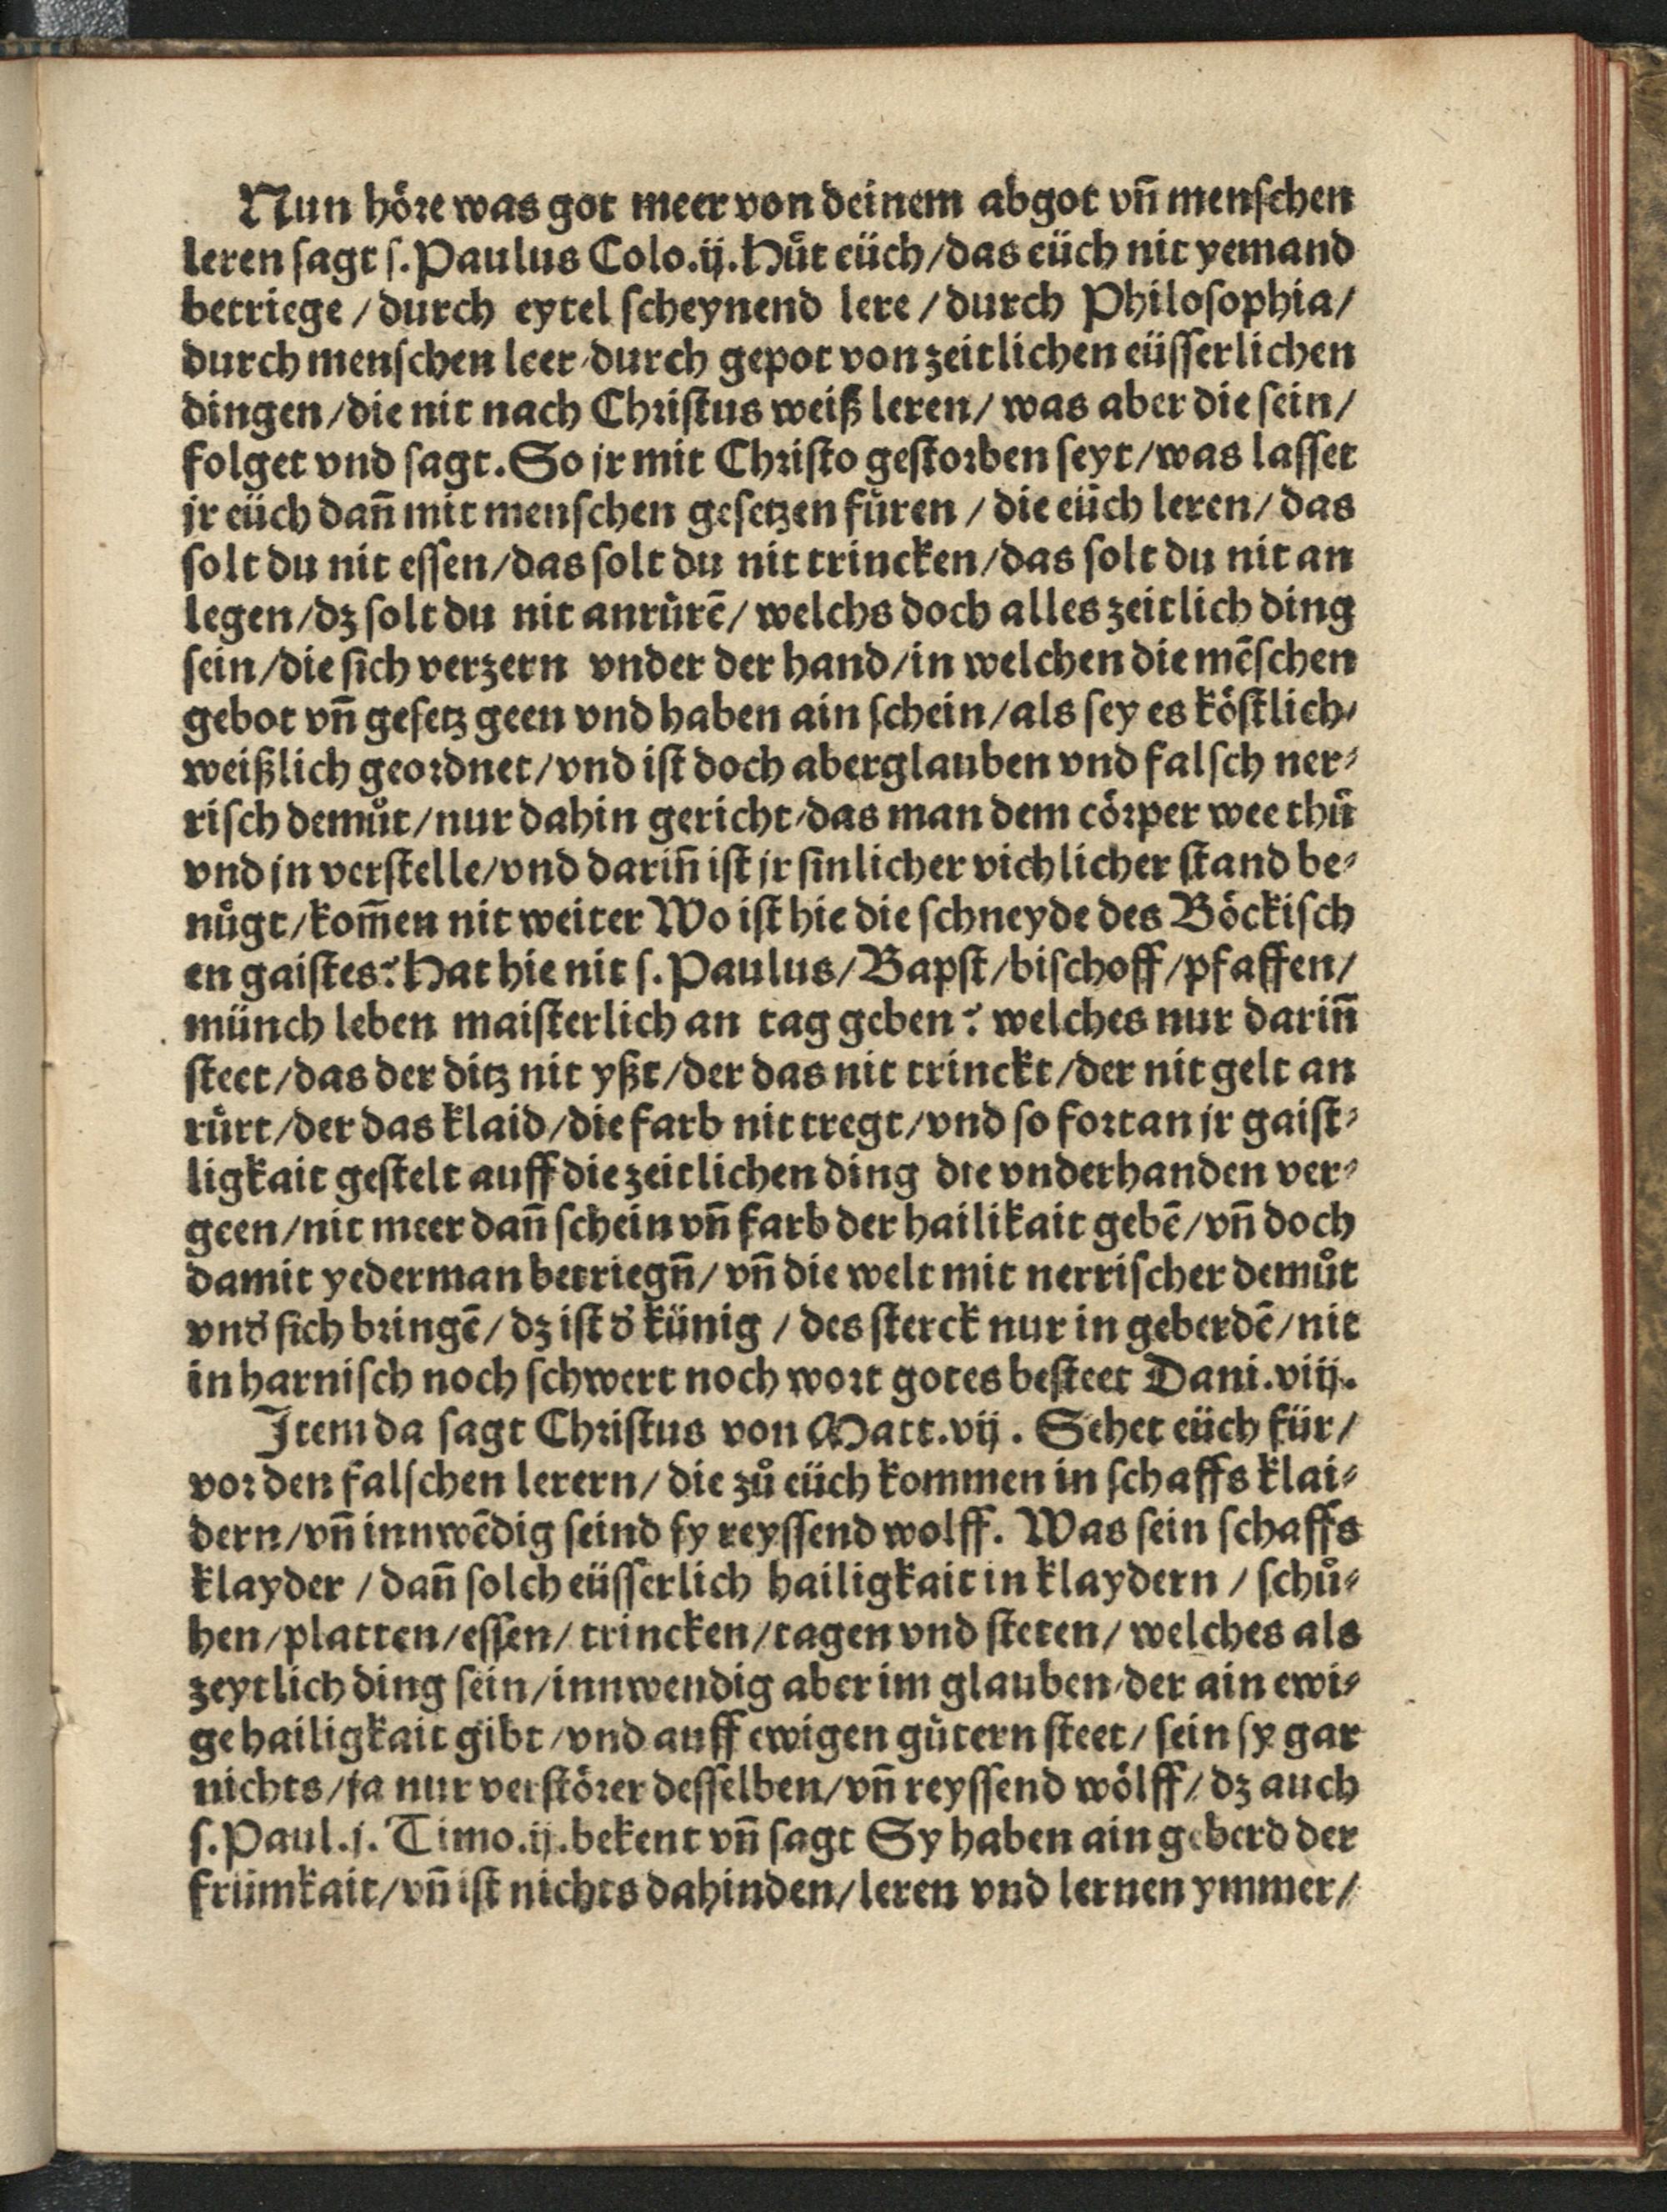 Nun hoͤre was got meer von deinem abgot vñ menſchen
leren ſagt ſ. Paulus Colo.ij. Huͤt eüch/das eüch nit yemand
betriege/durch eytel ſcheynend lere/durch Philoſophia/
durch menſchen leer/durch gepot von zeitlichen eüſſerlichen
dingen/die nit nach Chriſtus weiß leren/was aber die ſein/
folget vnd ſagt. So jr mit Chriſto geſtorben ſeyt/was laſſet
jr eüch dañ mit menſchen geſetzen fuͤren/die eüch leren/das
ſolt du nit eſſen/das ſolt du nit trincken/das ſolt du nit an
legen/dz ſolt du nit anruͤrē/welchs doch alles zeitlich ding
ſein/die ſich verzern vnder der hand/in welchen die mēſchen
gebot vñ geſetz geen vnd haben ain ſchein/als ſey es koͤſtlich/
weißlich geordnet/vnd iſt doch aberglauben vnd falſch ner⸗
riſch demuͤt/nur dahin gericht/das man dem coͤrper wee thuͤ
vnd jn verſtelle/vnd dariñ iſt jr ſinlicher vichlicher ſtand be⸗
nuͤgt/kom̄en nit weiter Wo iſt hie die ſchneyde des Boͤckiſch
en gaiſtes? Hat hie nit ſ. Paulus/Bapſt/biſchoff/pfaffen/
münch leben maiſterlich an tag geben? welches nur dariñ
ſteet/das der ditz nit yßt/der das nit trinckt/der nit gelt an
ruͤrt/der das klaid/die farb nit tregt/vnd ſo fortan jr gaiſt⸗
ligkait geſtelt auff die zeitlichen ding die vnderhanden ver⸗
geen/nit meer dañ ſchein vñ farb der hailikait gebē/vñ doch
damit yederman betriegñ/vñ die welt mit nerriſcher demuͤt
vnd̕ ſich bringē/dz iſt d̕ künig/des ſterck nur in geberdē/nit
in harniſch noch ſchwert noch wort gotes beſteet Dani.viij.
Item da ſagt Chriſtus von Matt.vij. Sehet eüch für/
vor den falſchen lerern/die zuͦ eüch kommen in ſchaffs klai⸗
dern/vñ innwēdig ſeind ſy reyſſend wolff. Was ſein ſchaffs
klayder/dañ ſolch eüſſerlich hailigkait in klaydern/ſchuͦ⸗
hen/platten/eſſen/trincken/tagen vnd ſteten/welches als
zeytlich ding ſein/innwendig aber im glauben/der ain ewi⸗
ge hailigkait gibt/vnd auff ewigen guͤtern ſteet/ſein ſy gar
nichts/ja nur verſtoͤrer deſſelben/vñ reyſſend woͤlff/dz auch
ſ. Paul.j. Timo.ij.bekent vñ ſagt Sy haben ain geberd der
frümkait/vñ iſt nichts dahinden/leren vnd lernen ymmer/